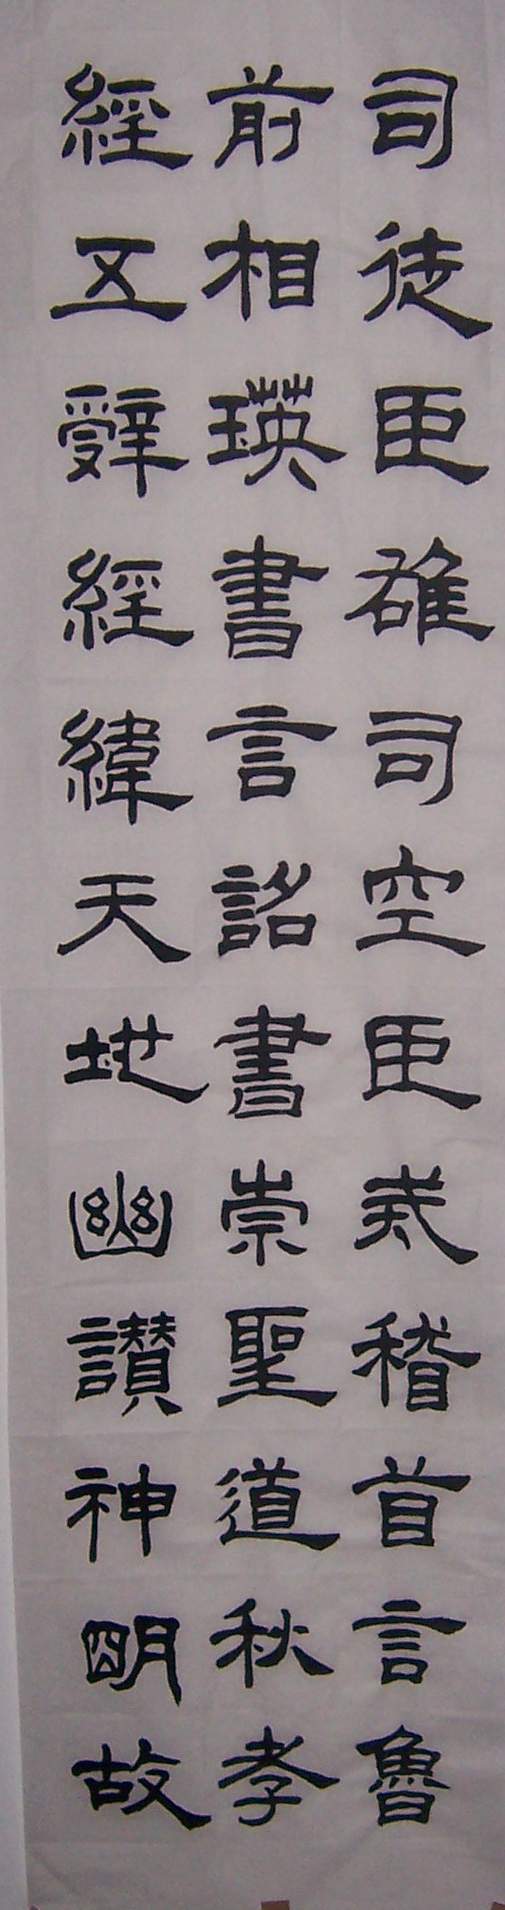 司徒臣雄司空臣戒稽首言魯
前相瑛書言詔書崇聖道秋孝
經五辤經緯天地幽讚神明故